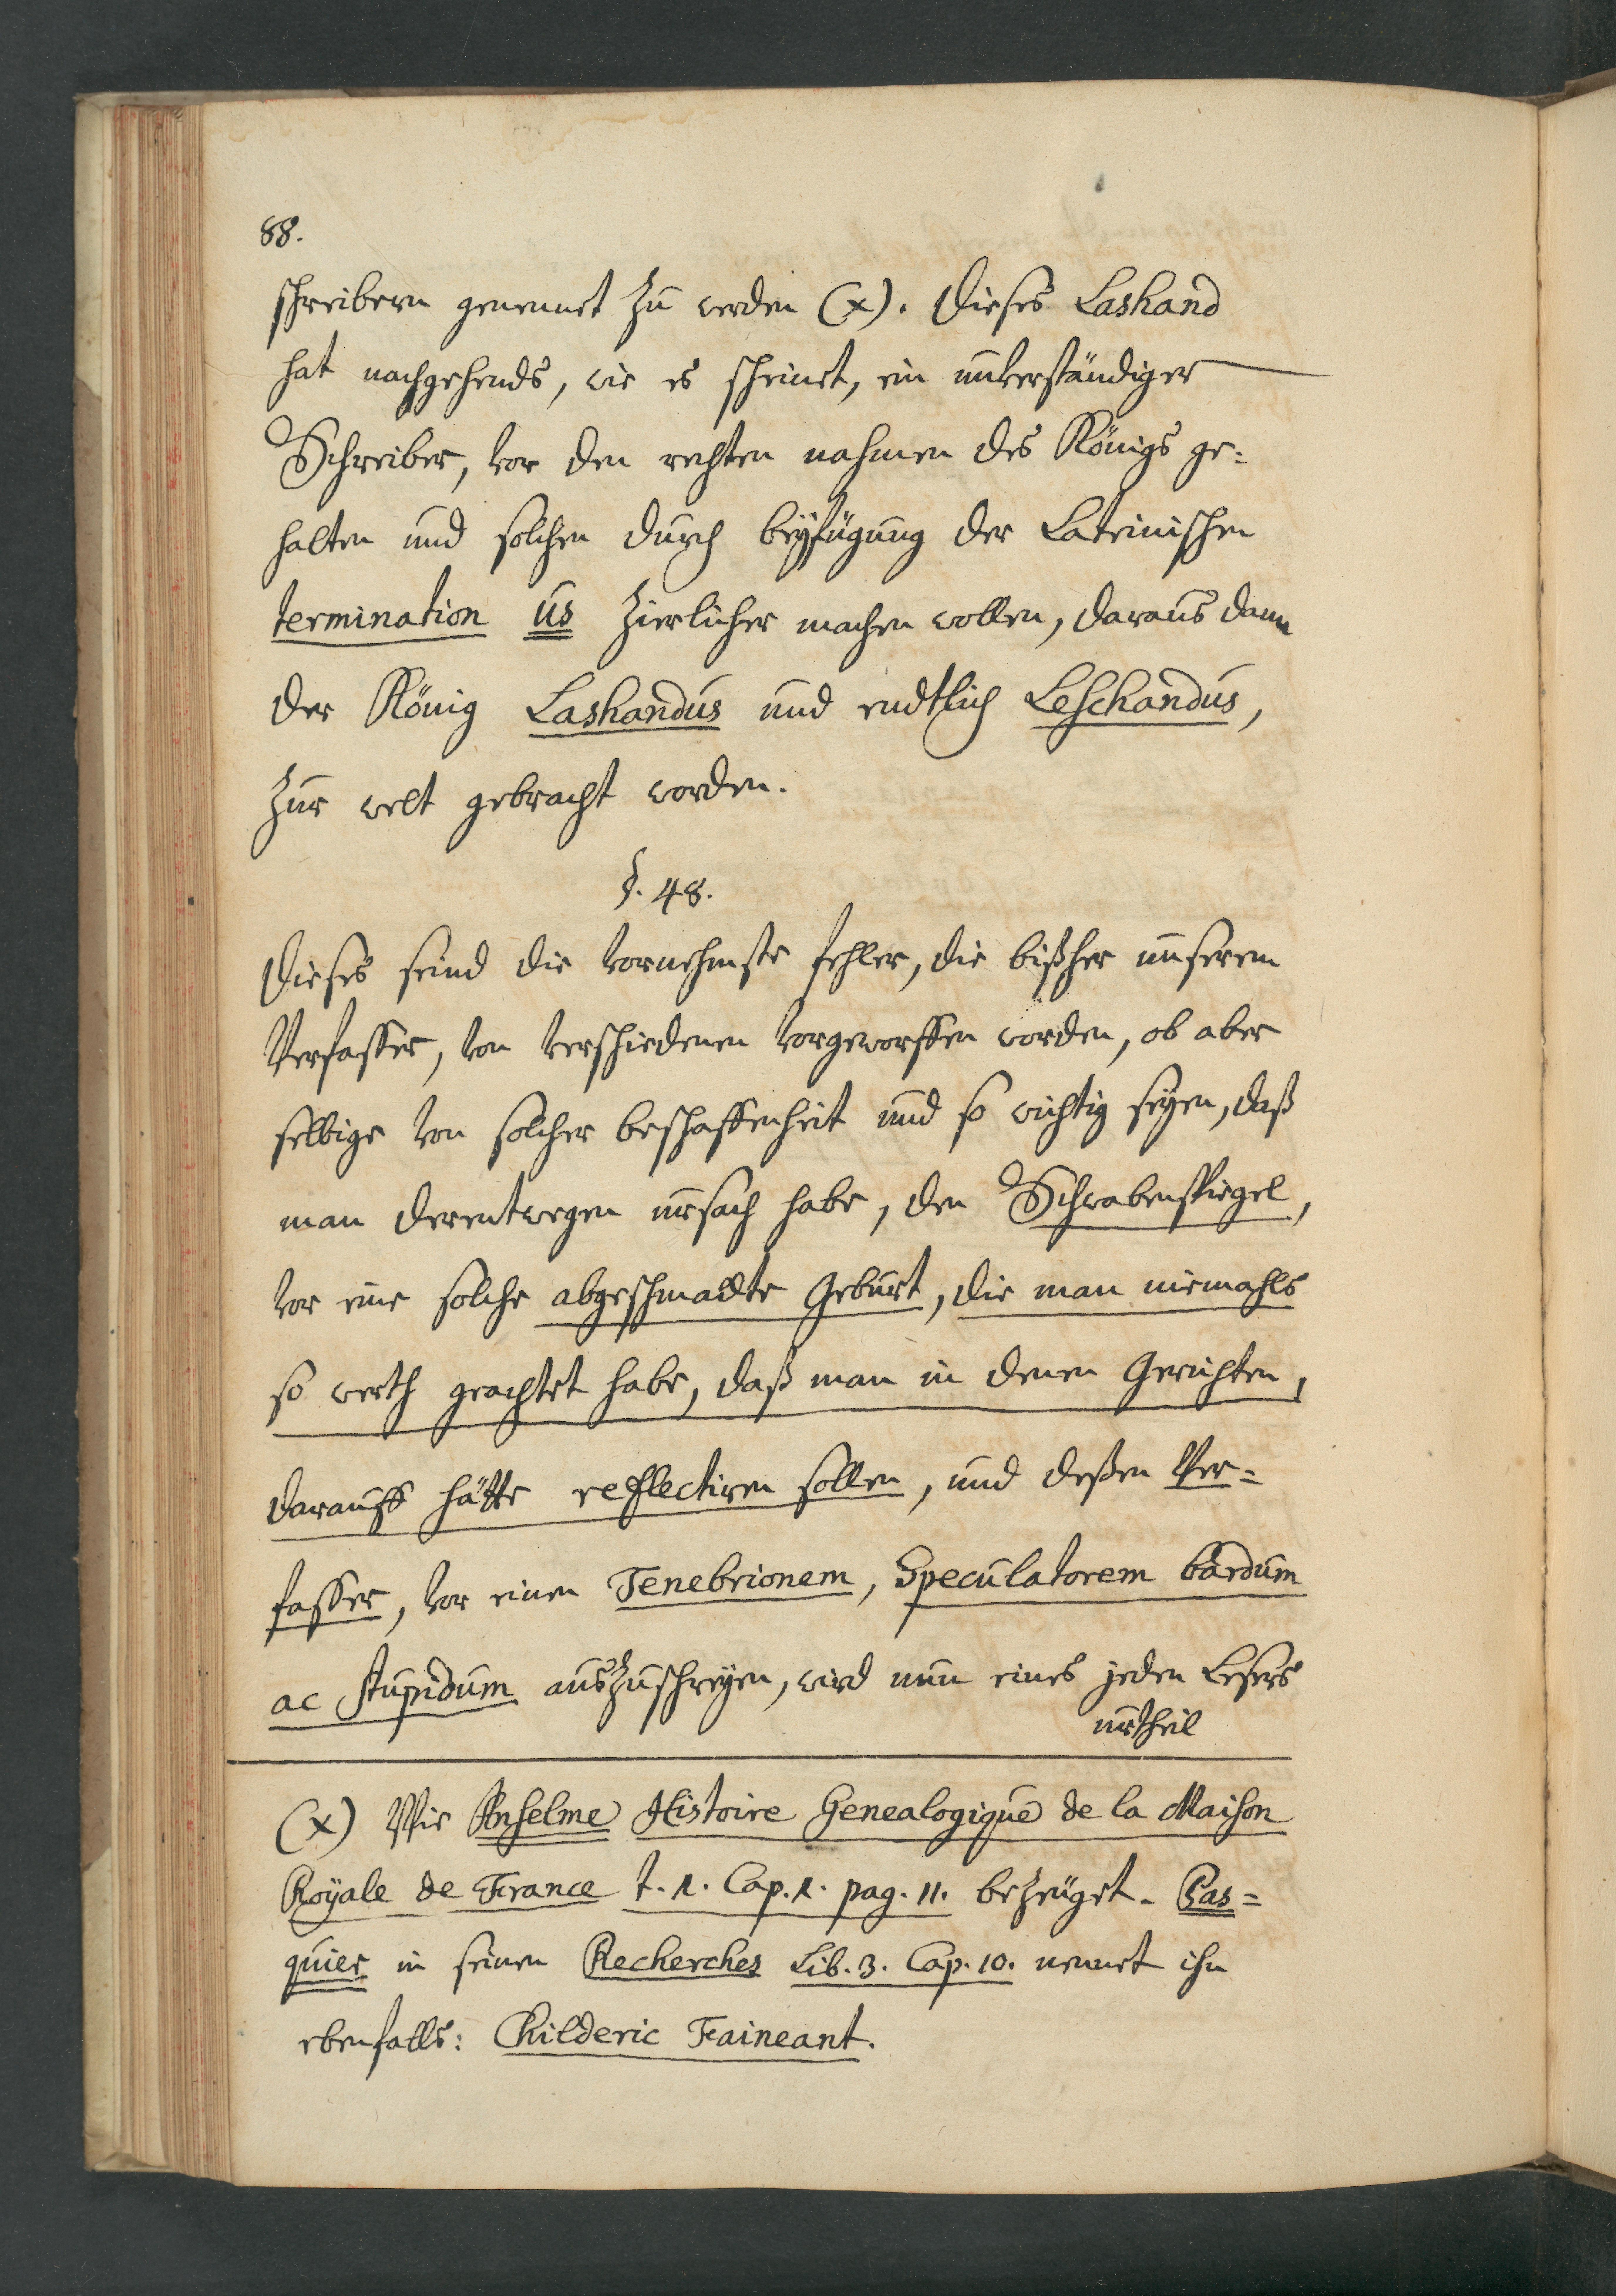 88.
schreibern genennet zu werden (x). Dieses Lashand
hat nachgehends, wie es scheinet, ein unverständiger
Schreiber, vor den rechten nahmen des Königs ge=
halten und solchen durch beyfügung der Lateinischen
termination us zierlicher machen wollen, daraus dann
der König Lashandus und endtlich Leschandus,
zur welt gebracht worden.
§. 48.
Dieses seind die vornehmste fehler, die bißher unserem
Verfasser, von verschiedenen vorgeworffen worden, ob aber
selbige von solcher beschaffenheit und so wichtig seyen, daß
man derentwegen ursach habe, den Schwabenspiegel,
vor eine solche abgeschmackte Geburt, die man niemahls
so werth geachtet habe, daß man in denen Gerichten,
darauff hätte reflectiren sollen, und deßen Ver=
fasser, vor einen Tenebrionem, Speculatorem bardum
ac stupidum auszuschreyen, wird nun eines jeden Lesers
urtheil
(x) Wie Anselme Histoire Genealogique de la Maison
Royale de France t. 1. Cap. 1. pag. 11. bezeüget. Pas=
quier in seinen Recherches Lib. 3. Cap. 10. nennet ihn
ebenfalls: Childeric Faineant.